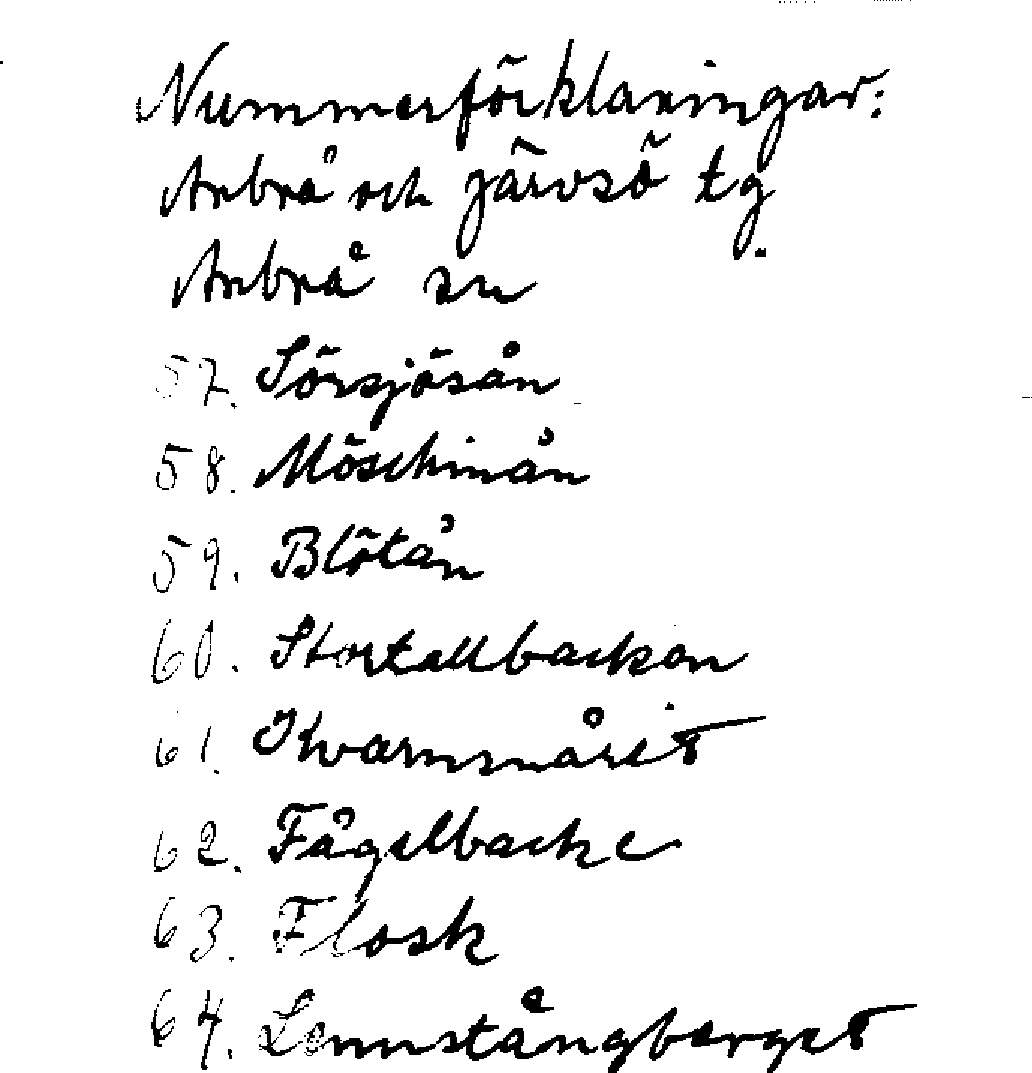 Nummerförklaringar:
Arbrå och Järvsö tg.
Arbrå sn
57. Sörsjösån
58. Möschinån
59. Blötån
60. Stortallbackan
61. Kvarnmåret
62. Fågelbacke
63. Flosk
64. Lennstångberget